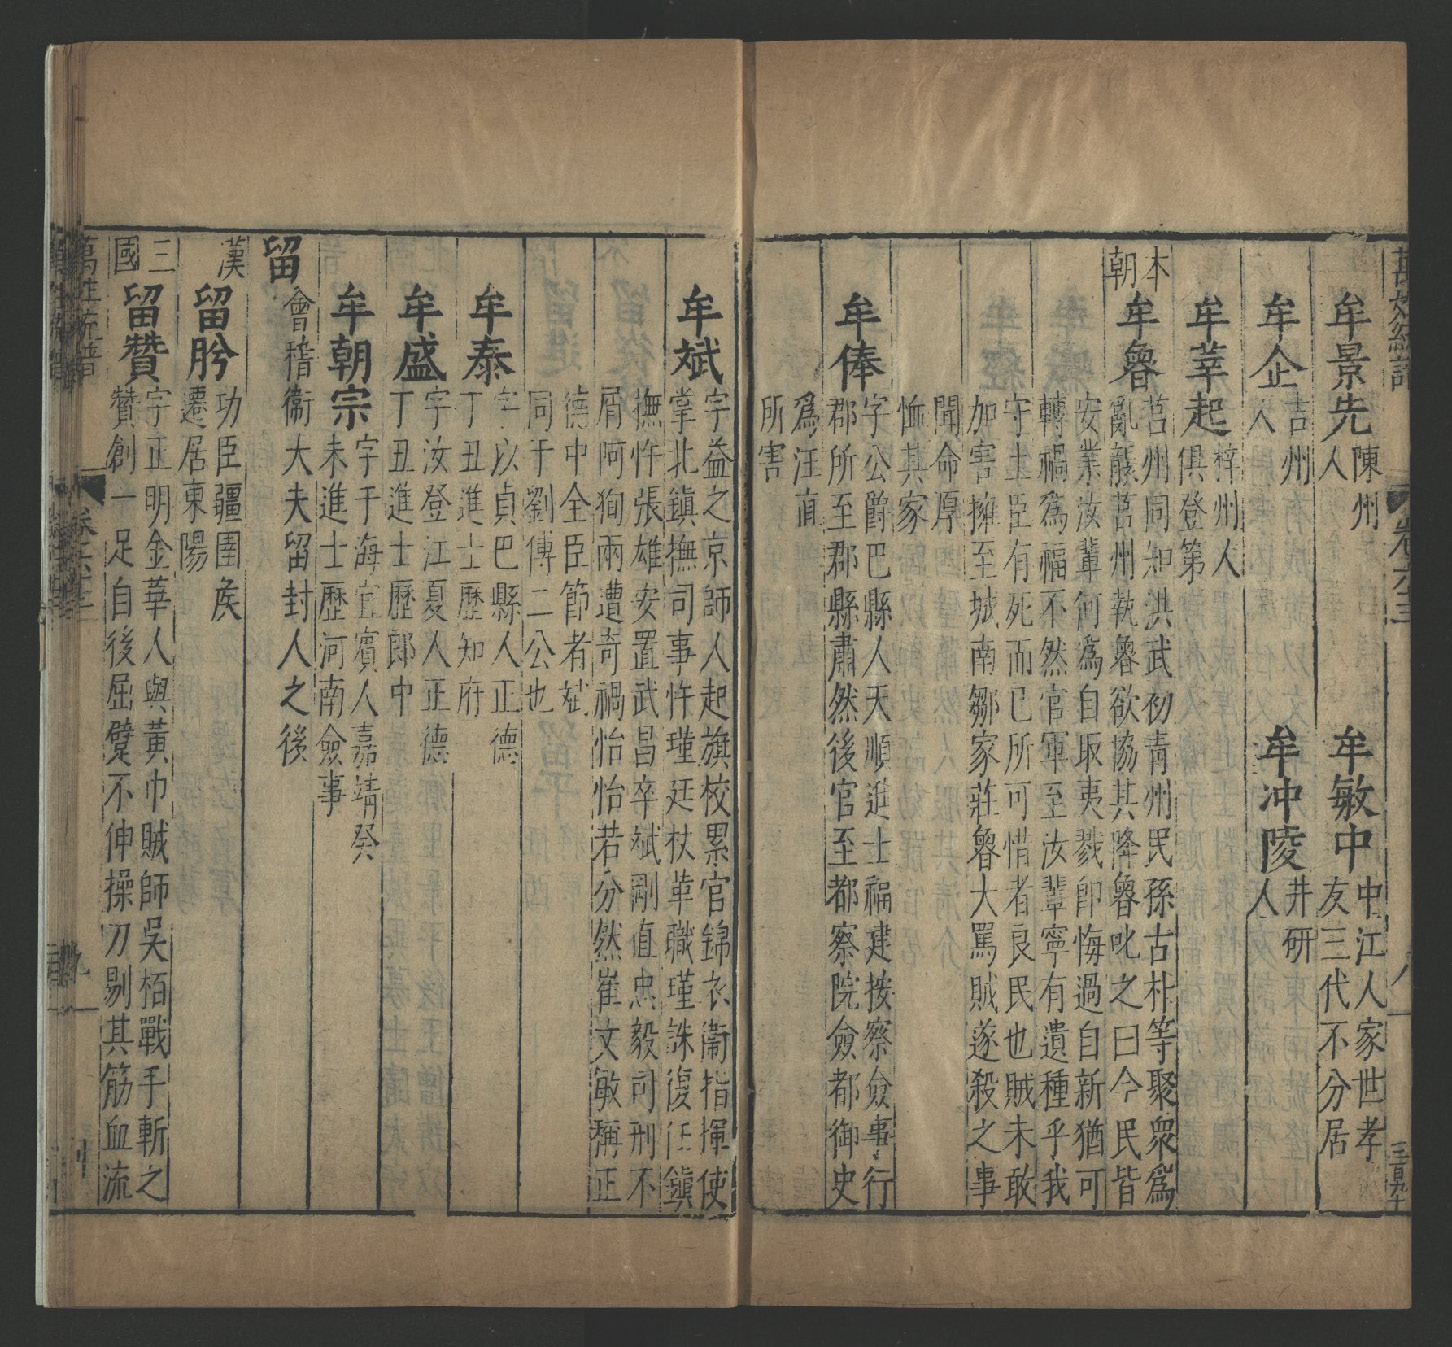 萬姓統譜
卷六十三
八
牟景先
陳州
人
牟敏中
中江人家世孝
友三代不分居
牟企
吉州
人
牟冲陵
井研
人
牟莘起
梓州人
俱登第
本
朝
牟魯
莒州同知洪武初青州民孫古朴等聚衆爲
亂襲莒州執魯欲協其降魯叱之曰今民皆
安業汝輩何爲自取夷戮卽悔過自新猶可
轉禍爲福不然官軍至汝輩寧有遺種乎我
守土臣有死而已所可惜者良民也賊未敢
加害擁至城南鄒家莊魯大罵賊遂殺之事
聞命厚
恤其家
牟俸
字公爵巴縣人天順進士福建按察僉事行
郡所至郡縣肅然後官至都察院僉都御史
爲汪直
所害
牟斌
字益之京師人起旗校累官錦衣衞指揮使
掌北鎭撫司事忤瑾廷杖革職瑾誅復任鎭
撫忤張雄安置武昌卒斌剛直忠毅司刑不
屑阿狥兩遭奇禍怡怡若分然崔文敏稱正
德中全臣節者斌
同于劉傅二公也
牟泰
字以貞巴縣人正德
丁丑進士歷知府
牟盛
字汝登江夏人正德
丁丑進士歷郎中
牟朝宗
字于海宜賓人嘉靖癸
未進士歷河南僉事
留
會稽
衞大夫留封人之後
漢
留肹
功臣疆圉矦
遷居東陽
三
國
留贊
字正明金華人與黃巾賊師吳栢戰手斬之
贊創一足自後屈躄不伸操刀剔其筋血流
萬姓統譜
卷六十三
九